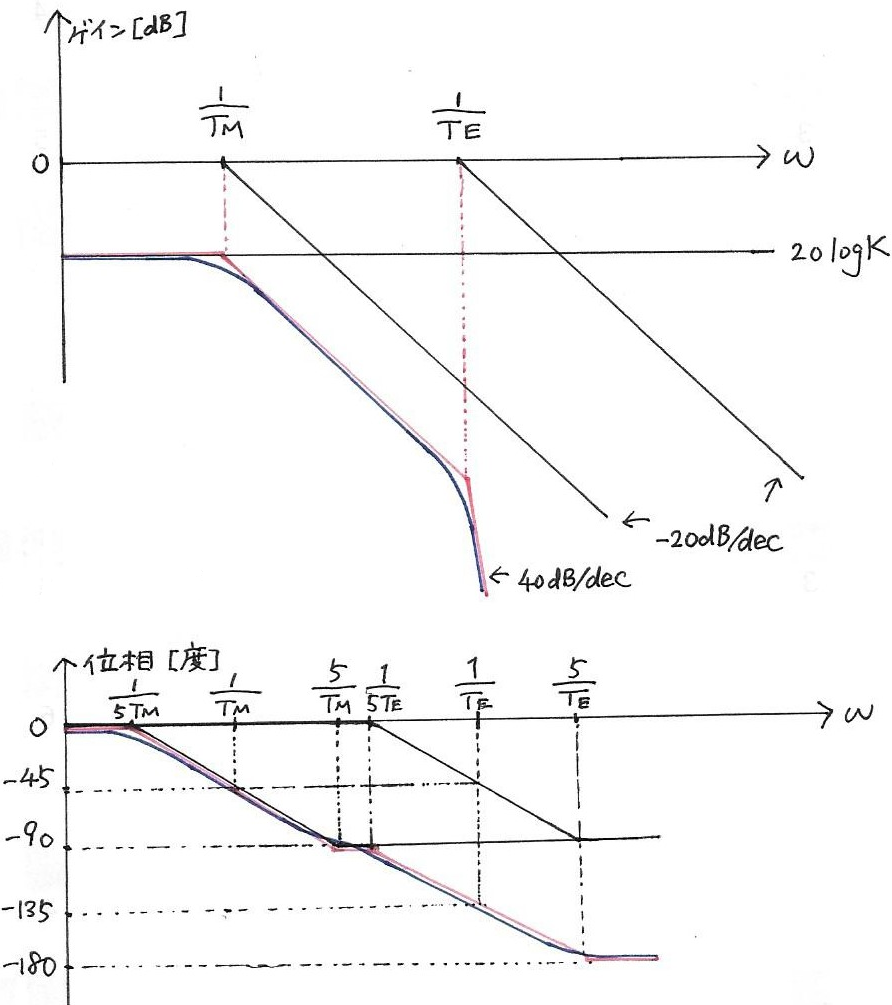 ゲイン[dB]
1/TM
1/TE
0
ω
20logK
-20dB/dec
40dB/dec
位相[度]
1/5TM
1/TM
5/TM
1/5TE
1/TE
5/TE
0
ω
-45
-90
-135
-180